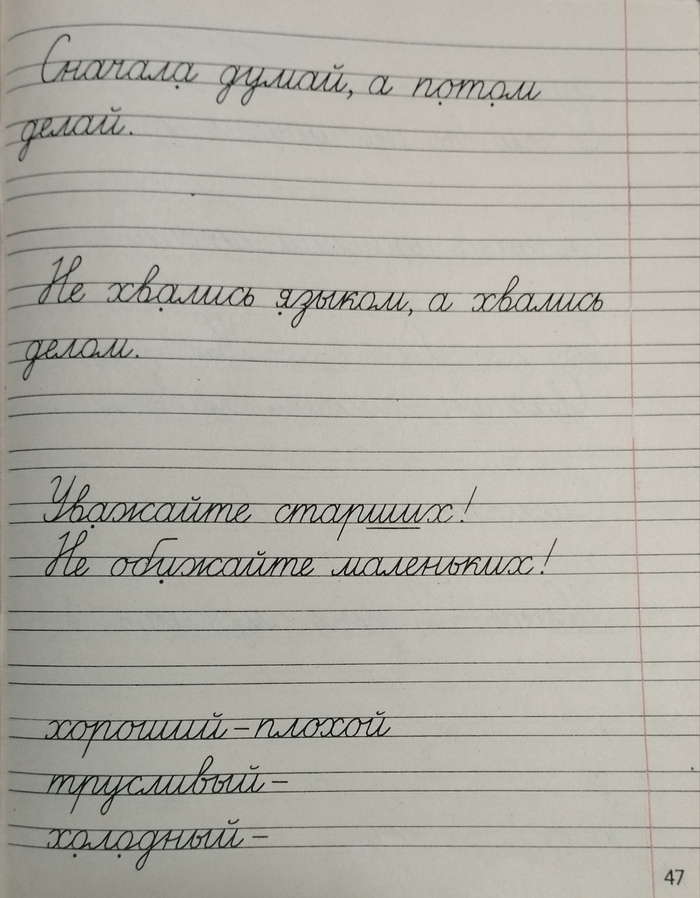 Сначала думай, а потом
делай.
Не хвались языком, а хвались
делом.
Уважайте старших!
Не обижайте маленьких!
хороший – плохой
трусливый –
холодный –
47